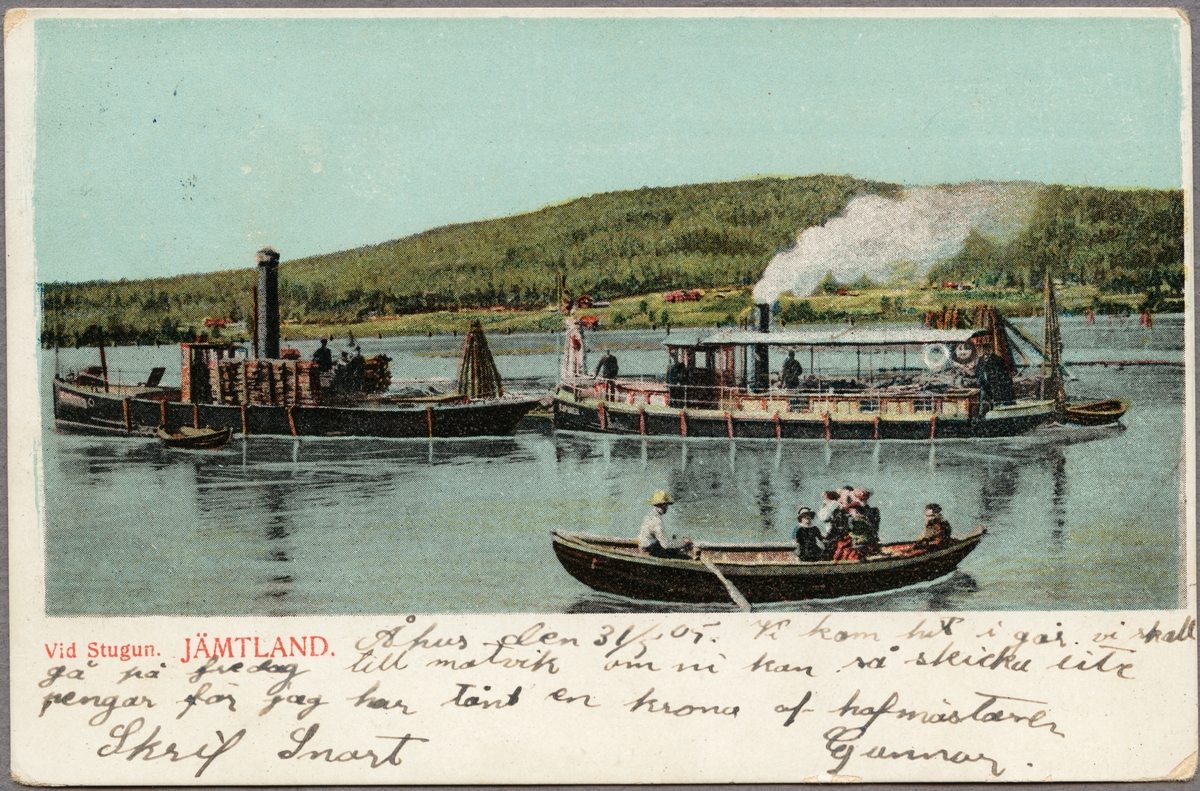 Vid Stugun. JÄMTLAND. Åhus den 31/5 05. Vi kom hit i går. vi skall
gå på fredag till matvik om ni kan så skicka lite
pengar för jag har lånt en krona af hofmästaren
Skrif Snart Gunnar.